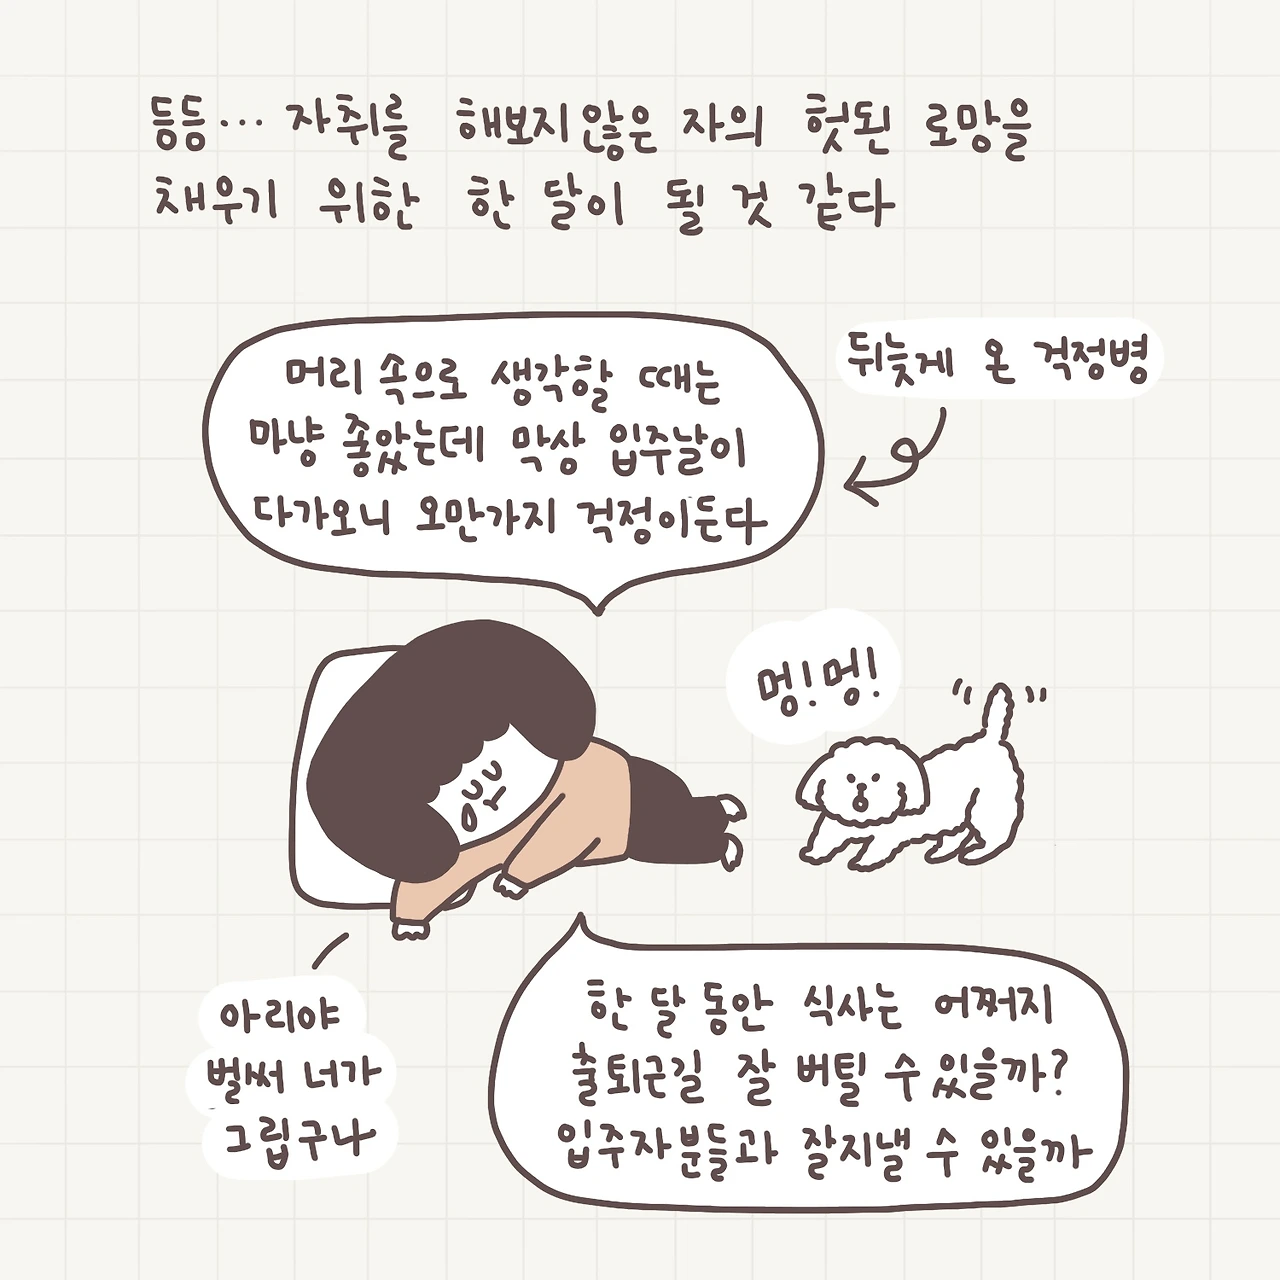 등등... 자취를 해보지않은 자의 헛된 로망을
채우기 위한 한 달이 될 것 같다
머리 속으로 생각할 때는
마냥 좋았는데 막상 입주날이
다가오니 오만가지 걱정이든다
뒤늦게 온 걱정병
멍! 멍!
아리야
벌써 너가
그립구나
한 달 동안 식사는 어쩌지
출퇴근길 잘 버틸 수 있을까?
입주자분들과 잘지낼 수 있을까